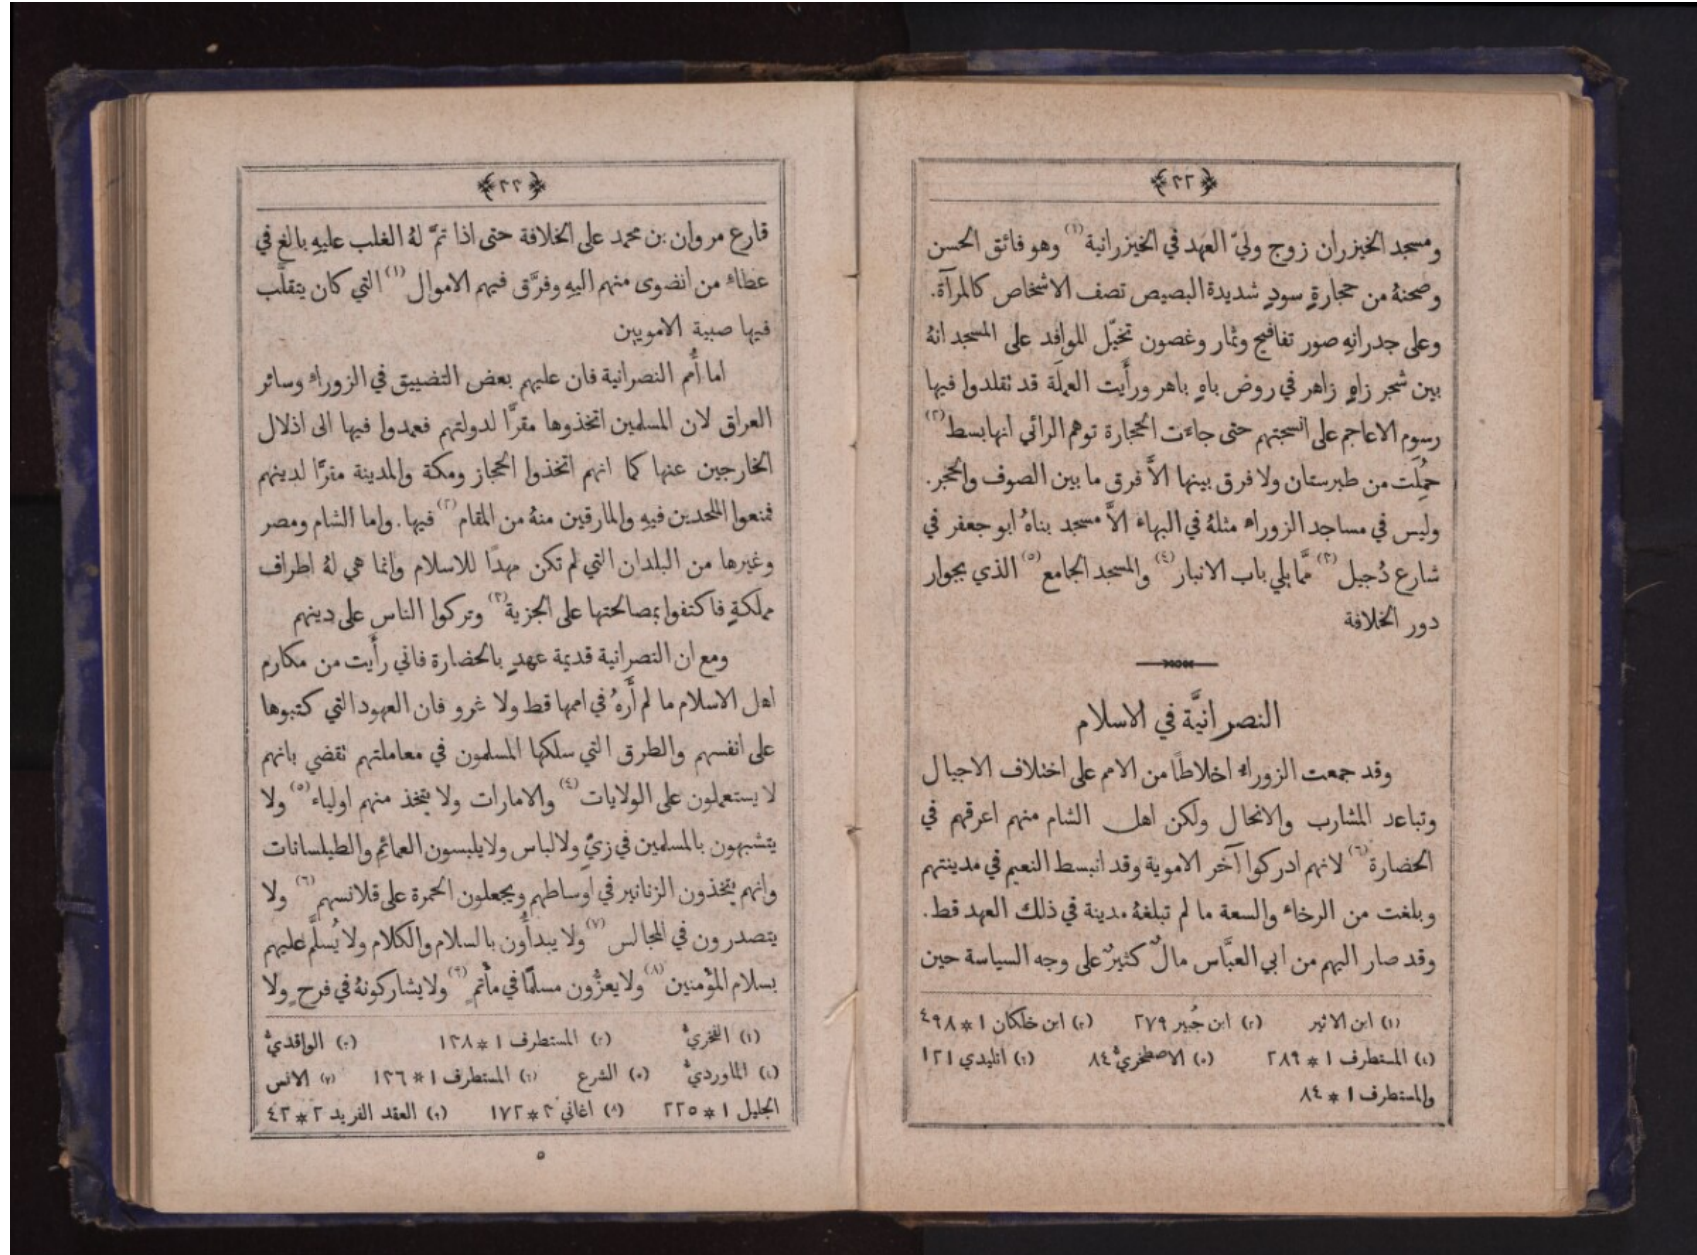 ﴿٣٢﴾
ومسجد الخيزران زوج وليّ العهد في الخيزرانية(١) وهو فائق الحسن
وصحنهُ من حجارةٍ سودٍ شديدة البصيص تصف الاشخاص كالمرآة.
وعلى جدرانهِ صور تفافيح وثمار وغصون تخيّل للوافد على المسجد انهُ
بين شجر زاهٍ زاهر في روض باهٍ باهر ورأَيت العملَة قد تقلدوا فيها
رسوم الاعاجم على انسجتهم حتى جاءَت الحجارة توهم الرائي انها بسط(٢)
حُمِلَت من طبرستان ولا فرق بينها الاَّ فرق ما بين الصوف والحجر.
وليس في مساجد الزوراء مثلهُ في البهاء الاَّ مسجد بناهُ ابو جعفر في
شارع دُجيل(٣) ممَّا يلي باب الانبار(٤) والمسجد الجامع(٥) الذي بجوار
دور الخلافة
النصرانيَّة في الاسلام
وقد جمعت الزوراء اخلاطًا من الامم على اختلاف الاجيال
وتباعد المشارب والانحال ولكن اهل الشام منهم اعرقهم في
الحضارة(٦) لانهم ادركوا آخر الاموية وقد انبسط النعيم في مدينتهم
وبلغت من الرخاء والسعة ما لم تبلغهُ مدينة في ذلك العهد قط.
وقد صار اليهم من ابي العبَّاس مالٌ كثيرٌ على وجه السياسة حين
(١) ابن الاثير (٢) ابن جُبير ٢٧٩ (٣) ابن خلكان ١*٤٩٨
(٤) المستطرف ١*٢٨٩ (٥) الاصطخريّ ٨٤ (٦) اتليدي ١٢١
والمستطرف ١*٨٤
﴿٣٣﴾
قارع مروان بن محمد على الخلافة حتى اذا تمَّ لهُ الغلب عليهِ بالغ في
عطاءِ من انضوى منهم اليهِ وفرَّق فيهم الاموال(١) التي كان يتقلَّب
فيها صبية الامويين
اما أُمم النصرانية فان عليهم بعض التضييق في الزوراءِ وسائر
العراق لان المسلمين اتخذوها مقرًّا لدولتهم فعمدوا فيها الى اذلال
الخارجين عنها كما انهم اتخذوا الحجاز ومكة والمدينة مقرًّا لدينهم
فمنعوا الملحدين فيهِ والمارقين منهُ من المقام(٢) فيها. واما الشام ومصر
وغيرها من البلدان التي لم تكن مهدًا للاسلام وانما هي لهُ اطراف
مملكةٍ فاكتفوا بمصالحتها على الجزية(٣) وتركوا الناس على دينهم
ومع ان النصرانية قديمة عهدٍ بالحضارة فاني رأَيت من مكارم
اهل الاسلام ما لم أَرهُ في اممها قط ولا غرو فان العهود التي كتبوها
على انفسهم والطرق التي سلكها المسلمون في معاملتهم تقضي بانهم
لا يستعملون على الولايات(٤) والامارات ولا يتخذ منهم اولياء(٥) ولا
يتشبهون بالمسلمين في زيٍّ ولا لباس ولا يلبسون العمائم والطيلسانات
وانهم يتخذون الزنانير في اوساطهم ويجعلون الحمرة على قلانسهم(٦) ولا
يتصدرون في المجالس(٧) ولا يبدأُون بالسلام والكلام ولا يُسلَّم عليهم
بسلام المؤْمنين(٨) ولا يعزُّون مسلمًا في مأْتم(٩) ولا يشاركونهُ في فرحٍ ولا
(١) الفخريّ (٢) المستطرف ١*١٣٨ (٣) الواقديّ
(٤) الماورديّ (٥) الشرع (٦) المستطرف ١*١٣٦ (٧) الانس
الجليل ١*٢٣٥ (٨) اغاني ٢*١٧٢ (٩) العقد الفريد ٢*٤٣
٥